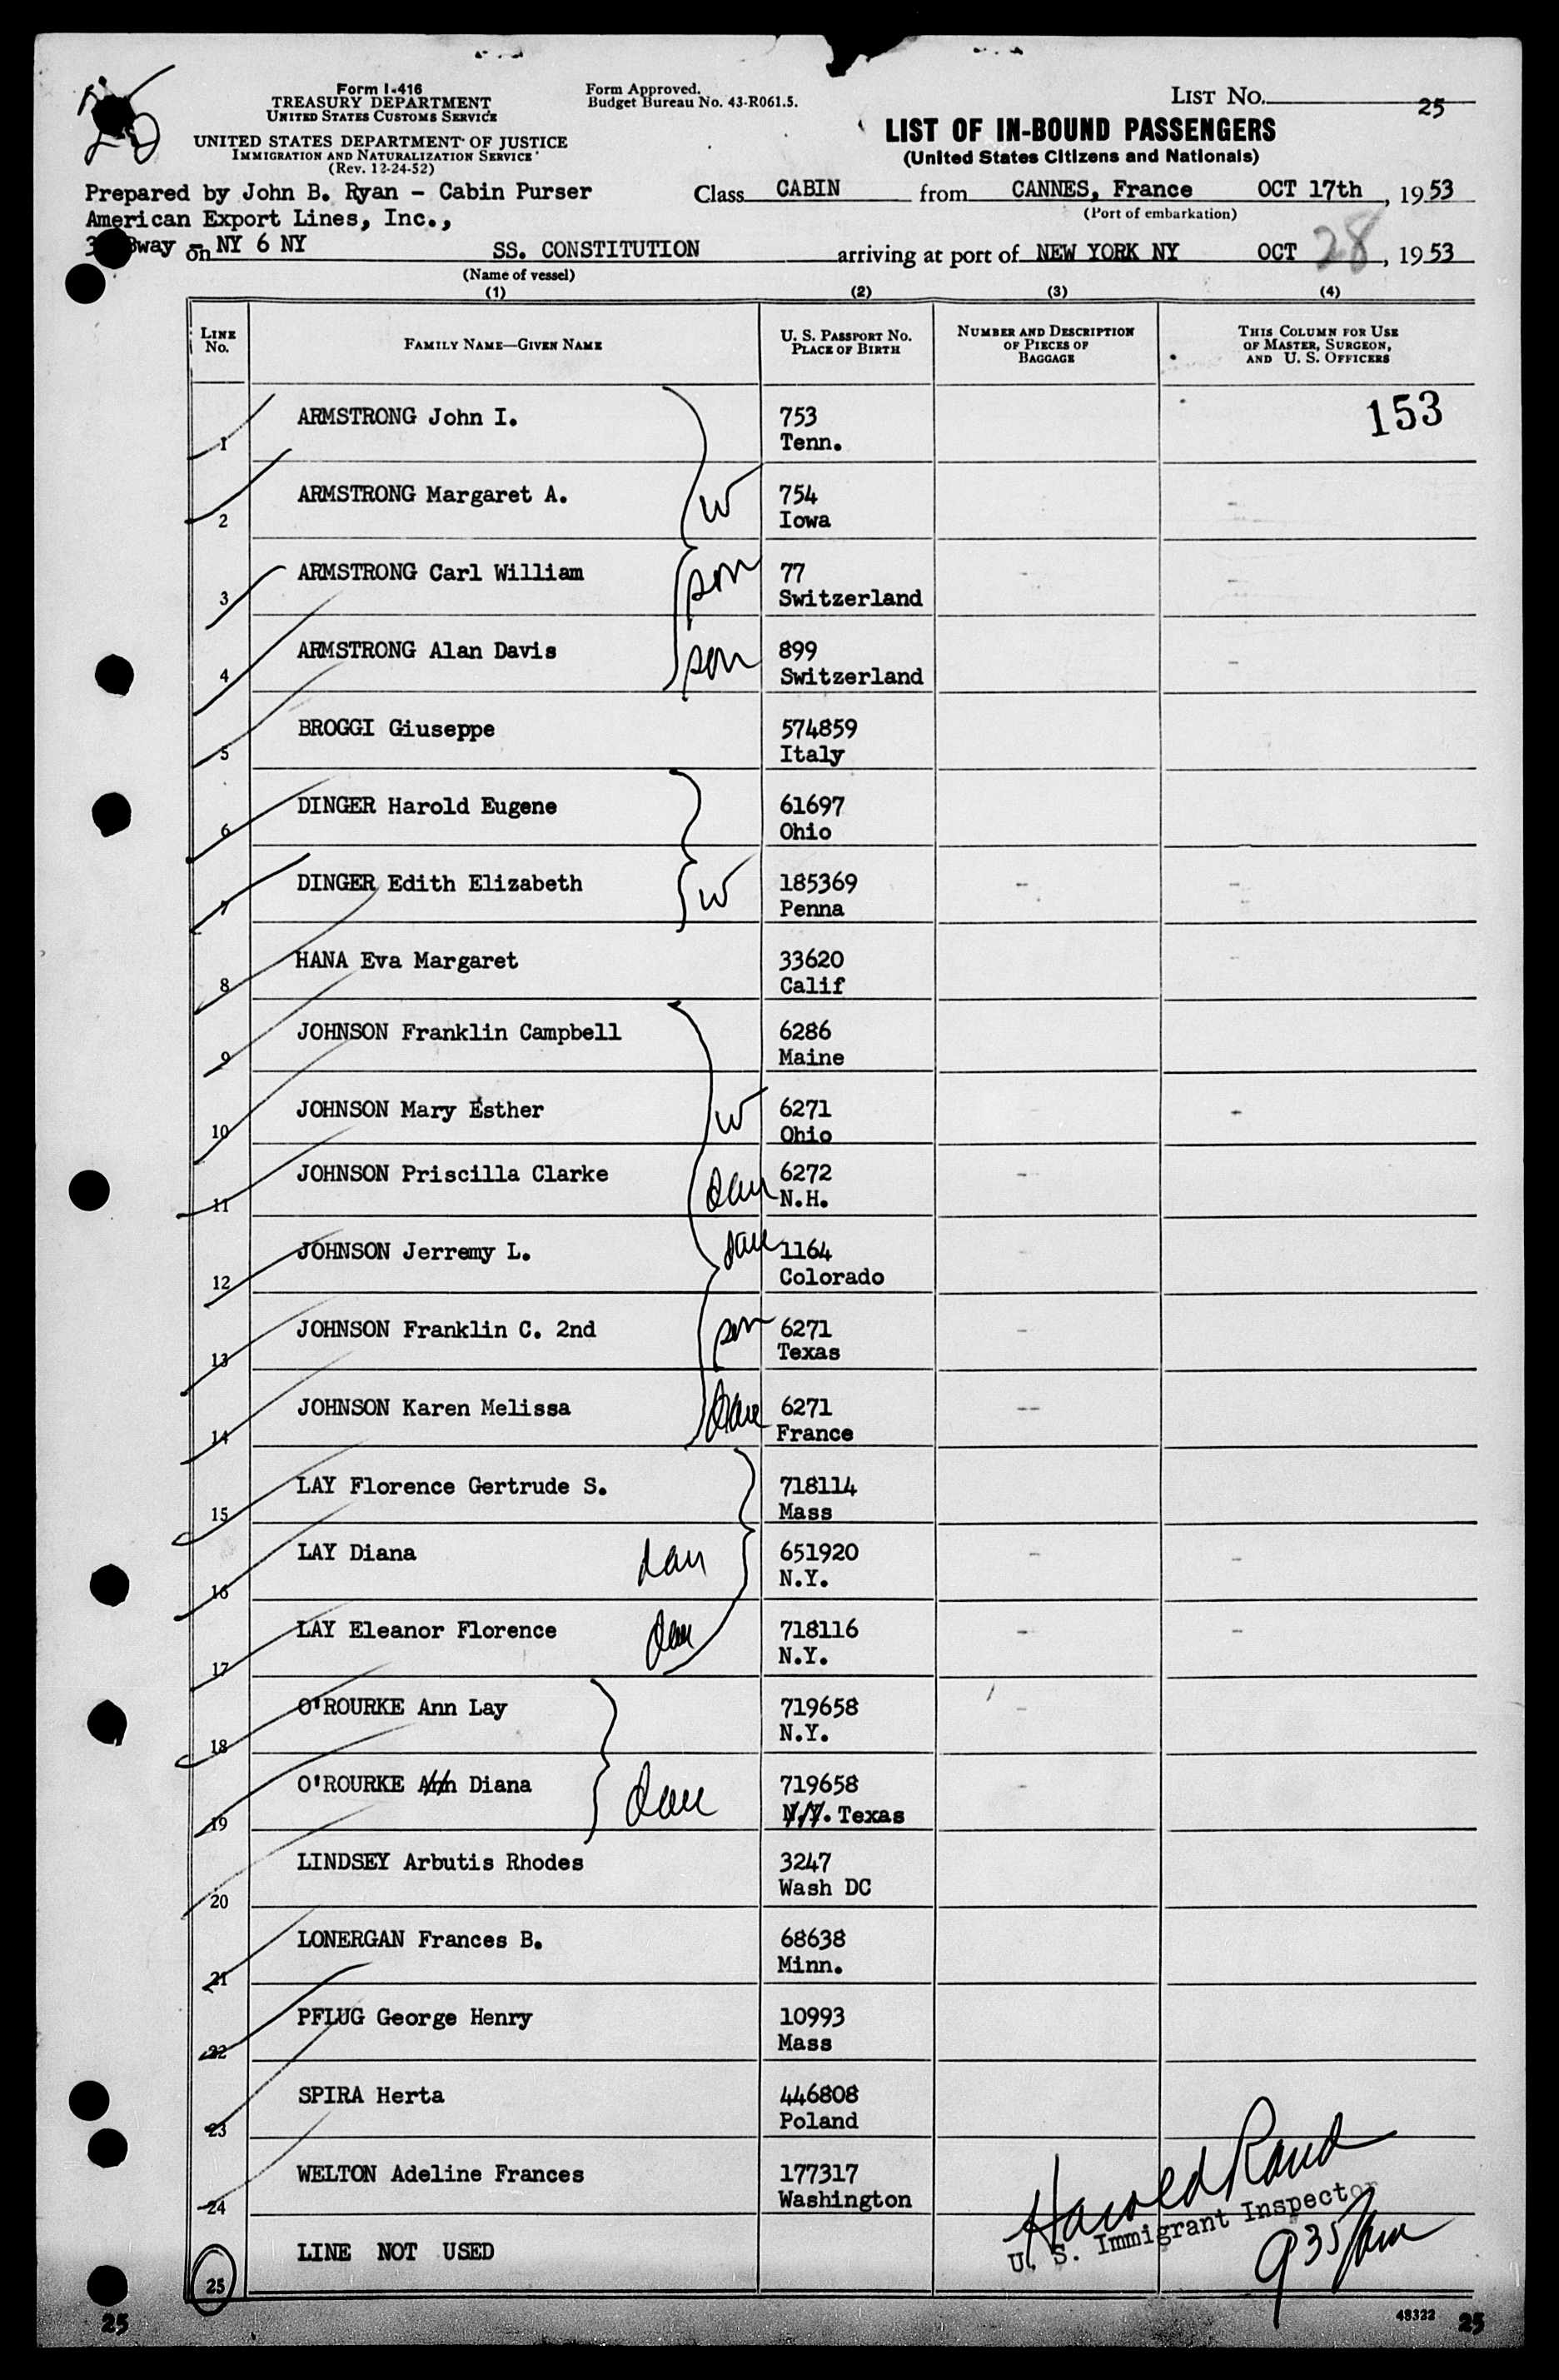 Form I-416
TREASURY DEPARTMENT
UNITED STATES CUSTOMS SERVICE
UNITED STATES DEPARTMENT OF JUSTICE
IMMIGRATION AND NATURALIZATION SERVICE
(Rev. 12-24-52)
Form Approved.
Budget Bureau No. 43-R061.5.
LIST NO. 25
LIST OF IN-BOUND PASSENGERS
(United States Citizens and Nationals)
Prepared by John B. Ryan - Cabin Purser
American Export Lines, Inc.,
Bway - NY 6 NY
Class CABIN from CANNES, France OCT 17th, 1953
(Port of embarkation)
on SS. CONSTITUTION arriving at port of NEW YORK NY OCT 28, 1953
(Name of vessel)
(1) (2) (3) (4)
LINE No.
FAMILY NAME—GIVEN NAME
U. S. PASSPORT NO.
PLACE OF BIRTH
NUMBER AND DESCRIPTION
OF PIECES OF
BAGGAGE
THIS COLUMN FOR USE
OF MASTER, SURGEON,
AND U. S. OFFICERS
153
1 ARMSTRONG John I. 753
Tenn.
2 ARMSTRONG Margaret A. W 754
Iowa
3 ARMSTRONG Carl William son 77
Switzerland
4 ARMSTRONG Alan Davis son 899
Switzerland
5 BROGGI Giuseppe 574859
Italy
6 DINGER Harold Eugene 61697
Ohio
7 DINGER Edith Elizabeth W 185369
Penna
8 HANA Eva Margaret 33620
Calif
9 JOHNSON Franklin Campbell 6286
Maine
10 JOHNSON Mary Esther W 6271
Ohio
11 JOHNSON Priscilla Clarke dau 6272
N.H.
12 JOHNSON Jerremy L. dau 1164
Colorado
13 JOHNSON Franklin C. 2nd son 6271
Texas
14 JOHNSON Karen Melissa dau 6271
France
15 LAY Florence Gertrude S. 718114
Mass
16 LAY Diana dau 651920
N.Y.
17 LAY Eleanor Florence dau 718116
N.Y.
18 O'ROURKE Ann Lay 719658
N.Y.
19 O'ROURKE Ann Diana dau 719658
N.Y. Texas
20 LINDSEY Arbutis Rhodes 3247
Wash DC
21 LONERGAN Frances B. 68638
Minn.
22 PFLUG George Henry 10993
Mass
23 SPIRA Herta 446808
Poland
24 WELTON Adeline Frances 177317
Washington
Harold Rand
U. S. Immigrant Inspector
935 am
25 LINE NOT USED
25 48322 25